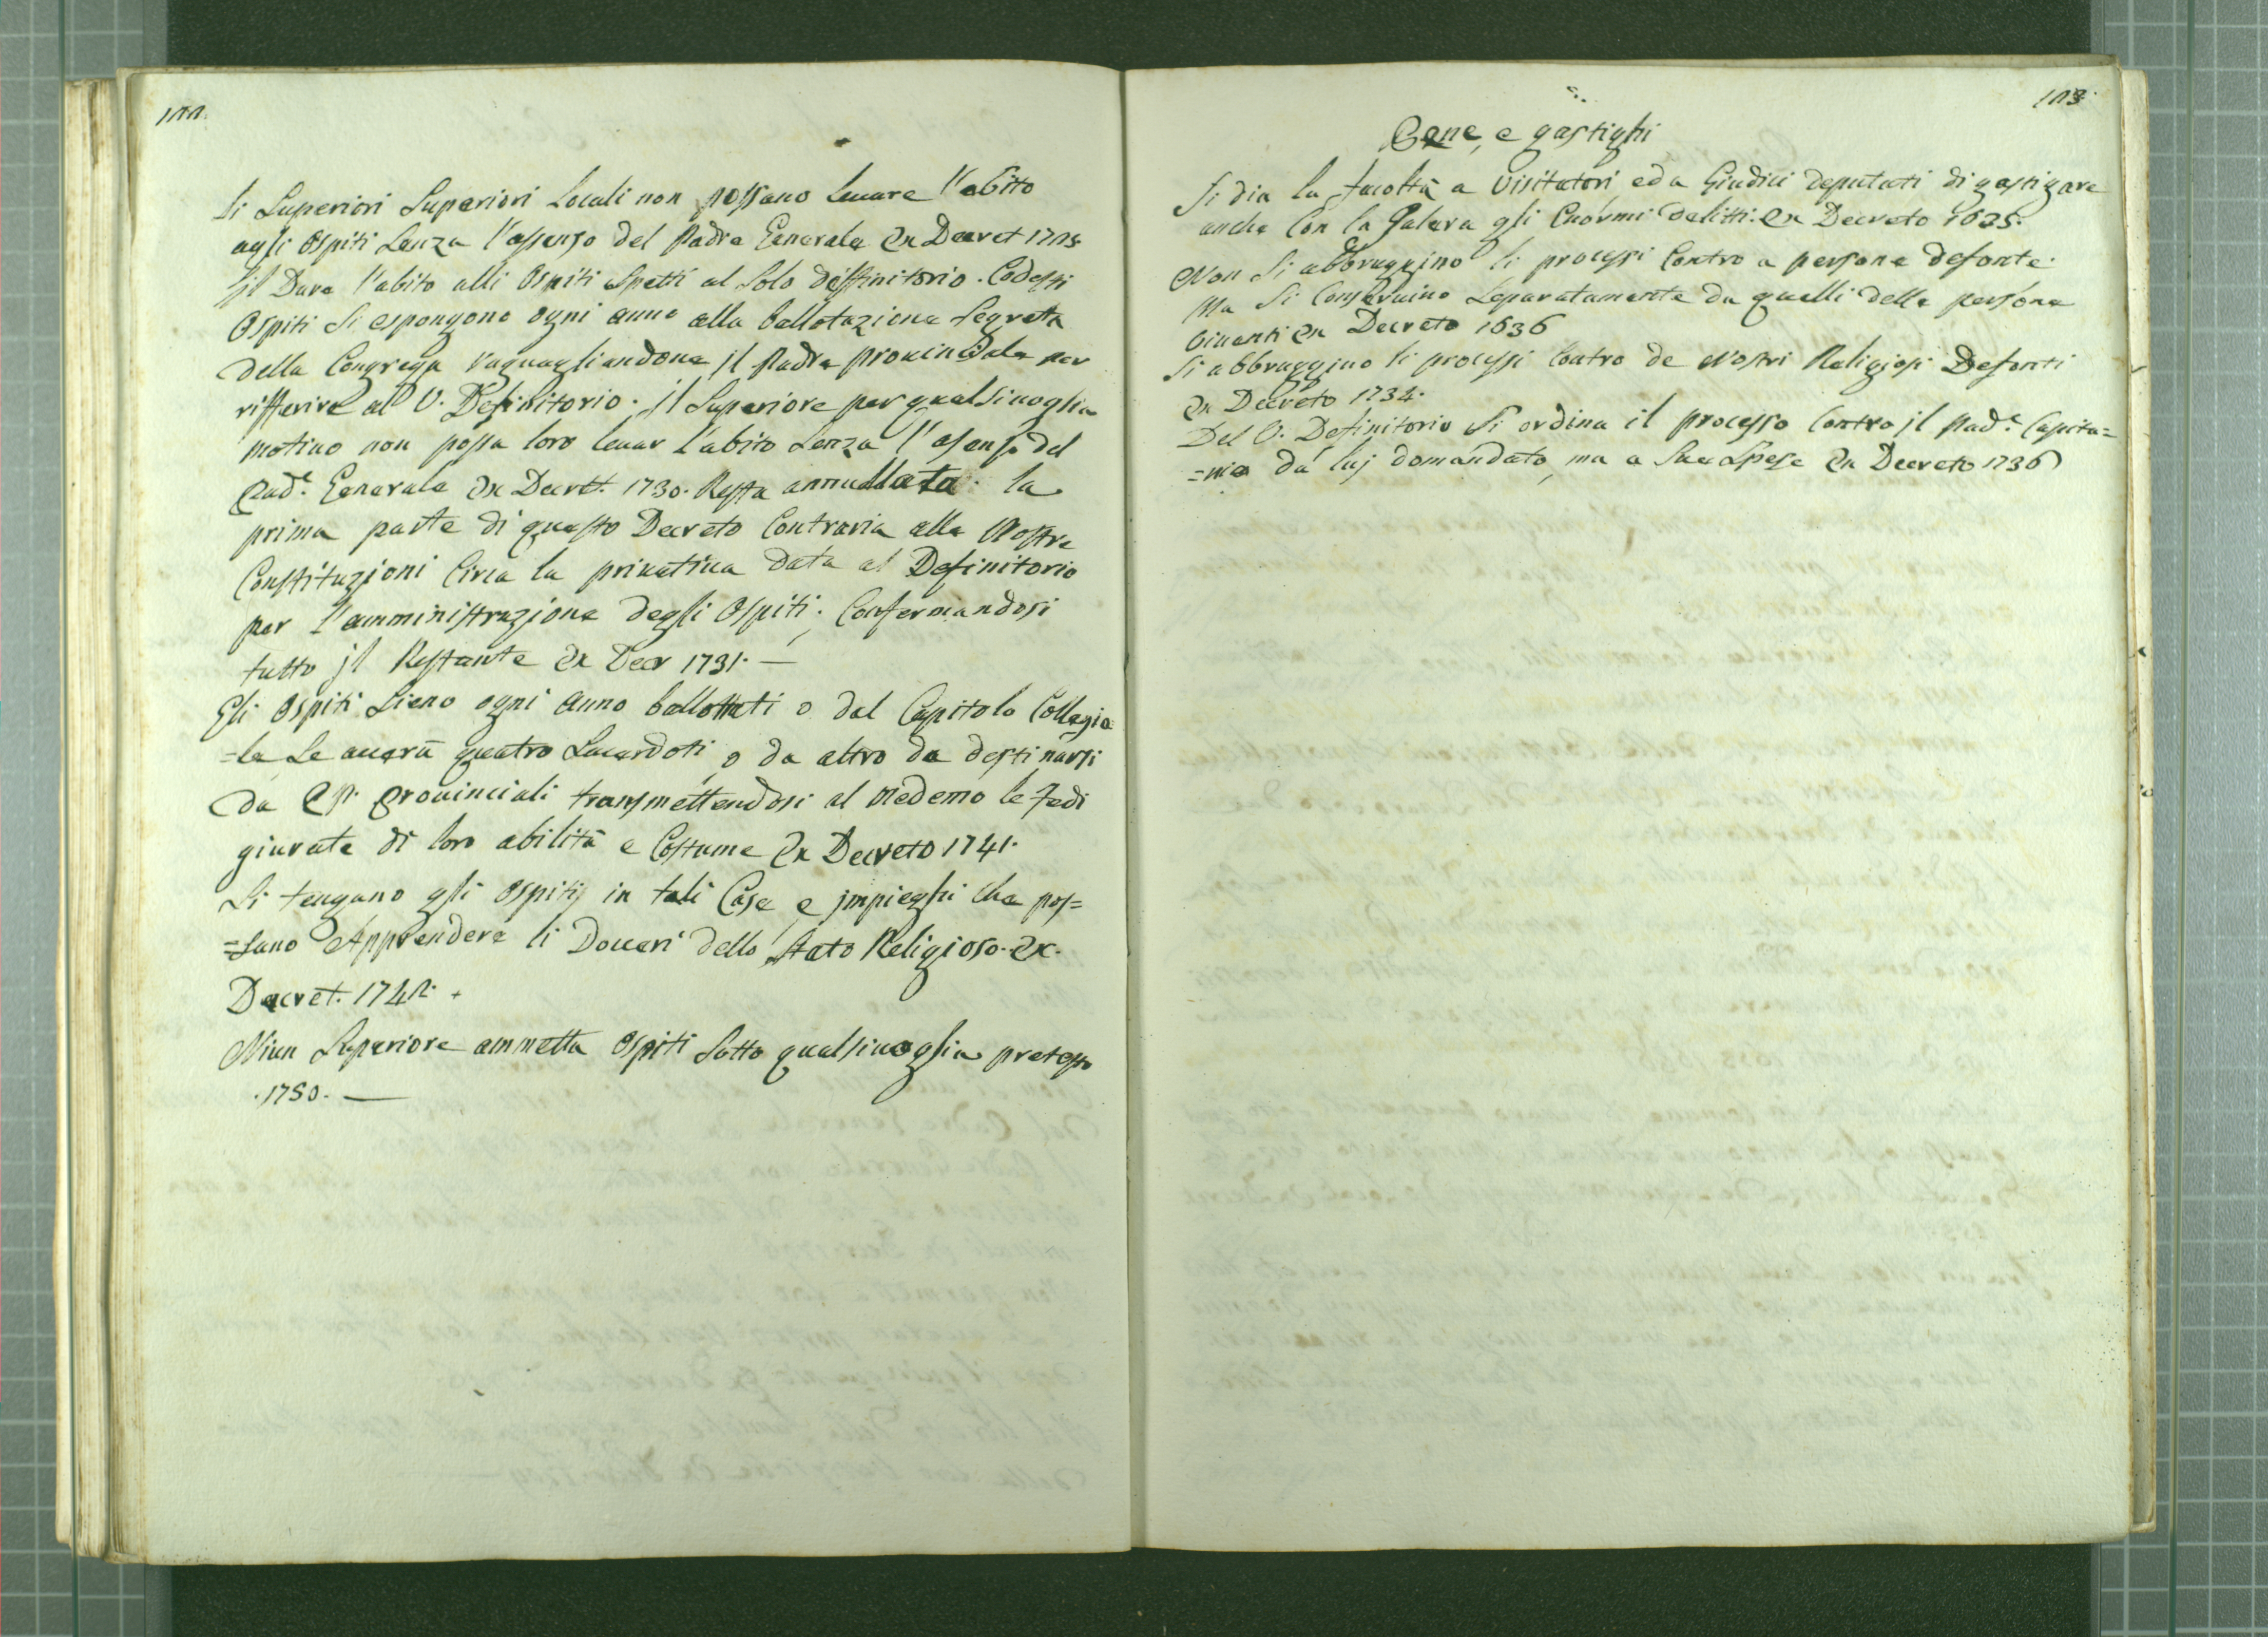 122.
Li Superiori Superiori Locali non possano leuare l'abito
agli Ospiti Senza l'assenso del Padre Generale Ex Decret 1725
Jl Dare l'abito alli Ospiti Spetti al Solo diffinitorio. Codesti
Ospiti Si espongono ogni anno alla ballotazione Segreta
della Congrega raguagliandone jl Padre prouinciale per
rifferire al V. Definitorio. jl Superiore per qualsiuoglia
motiuo non possa loro leuar l'abito Senza l'asenso del
Pad.e Generale Ex Decret. 1730. Resta annullata la
prima parte di questo Decreto Contraria alle Nostre
Constituzioni Circa la priuatiua data al Definitorio
per l'amministrazione degli Ospiti; Confermandosi
tutto jl Restante Ex Decr 1731. —
Gli Ospiti Sieno ogni Anno ballottati o dal Capitolo Collegia
=le Se auerà quatro Sacerdoti, o da altro da destinarsi
da PP. Prouinciali transmettendosi al Medemo le Fedi
giurate di loro abilità e Costume Ex Decreto 1741.
Si tengano gli Ospiti in tali Case e jmpieghi che pos=
=sano Apprendere li Doueri dello Stato Religioso. Ex.
Decret. 1742. +
Niun Superiore ammetta Ospiti Sotto qualsiuoglia pretesto
.1750. —
123.
Pene, e gastighi
Si dia la facoltà a Visitatori, ed a Giudici deputati di gastigare
anche Con la Galera gli Enormi delitti. Ex Decreto 1625.
Non Si abbruggino li processi Contro a persone defonte.
Ma Si Conseruino Separatamente da quelli delle persone
Viuenti Ex Decreto 1636
Si abbruggino li processi Contro de Nostri Religiosi Defonti
Ex Decreto 1734.
Del V. Definitorio Si ordina il processo Contro jl Pad.e Capita=
=nio da luj domandato, ma a Sue Spese Ex Decreto 1736